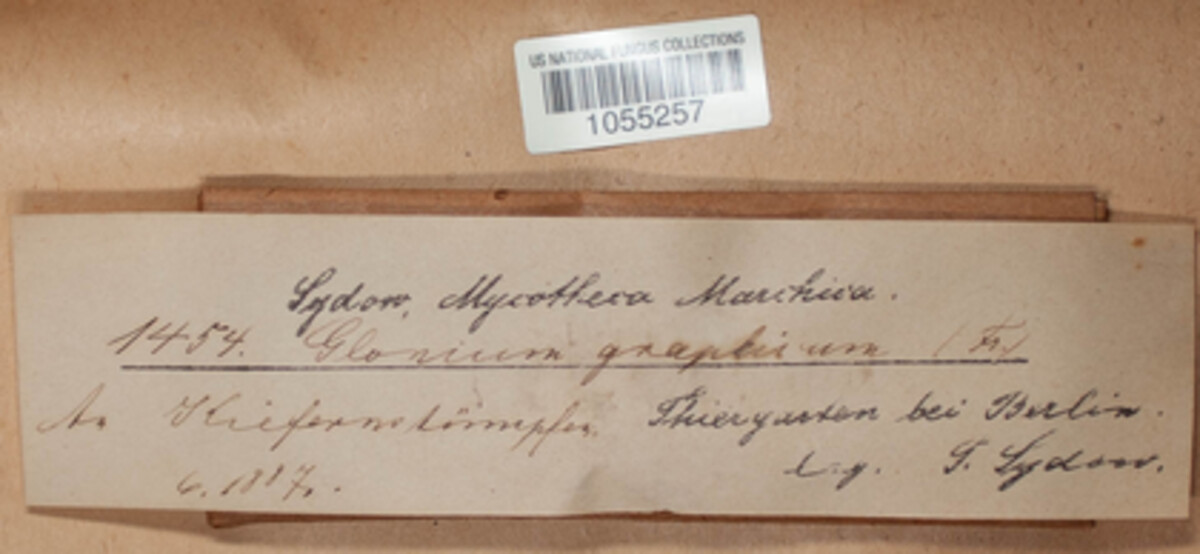 US NATIONAL FUNGUS COLLECTIONS
1055257
Sydow, Mycotheca Marchica.
1454. Glonium graphicum (Fr.)
An Kiefernstümpfen. Thiergarten bei Berlin.
6. 1887. leg. P. Sydow.